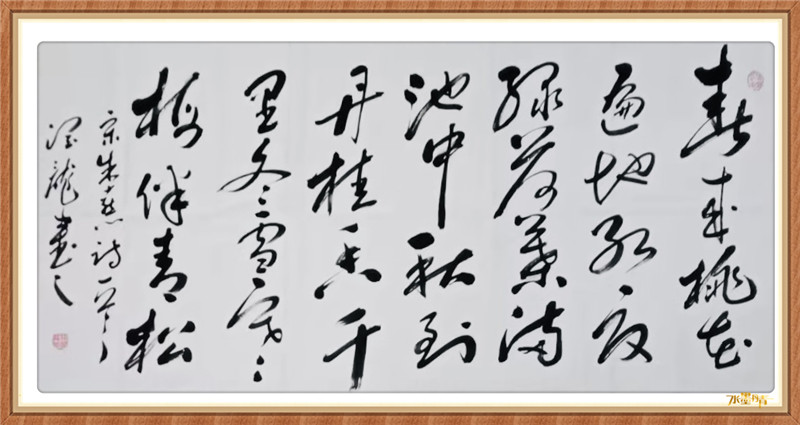 春来桃花
遍地红夏
绿荷葉满
池中秋到
丹桂香千
里冬雪寒
梅伴青松
宋朱熹诗一首
龍書之
水墨丹青